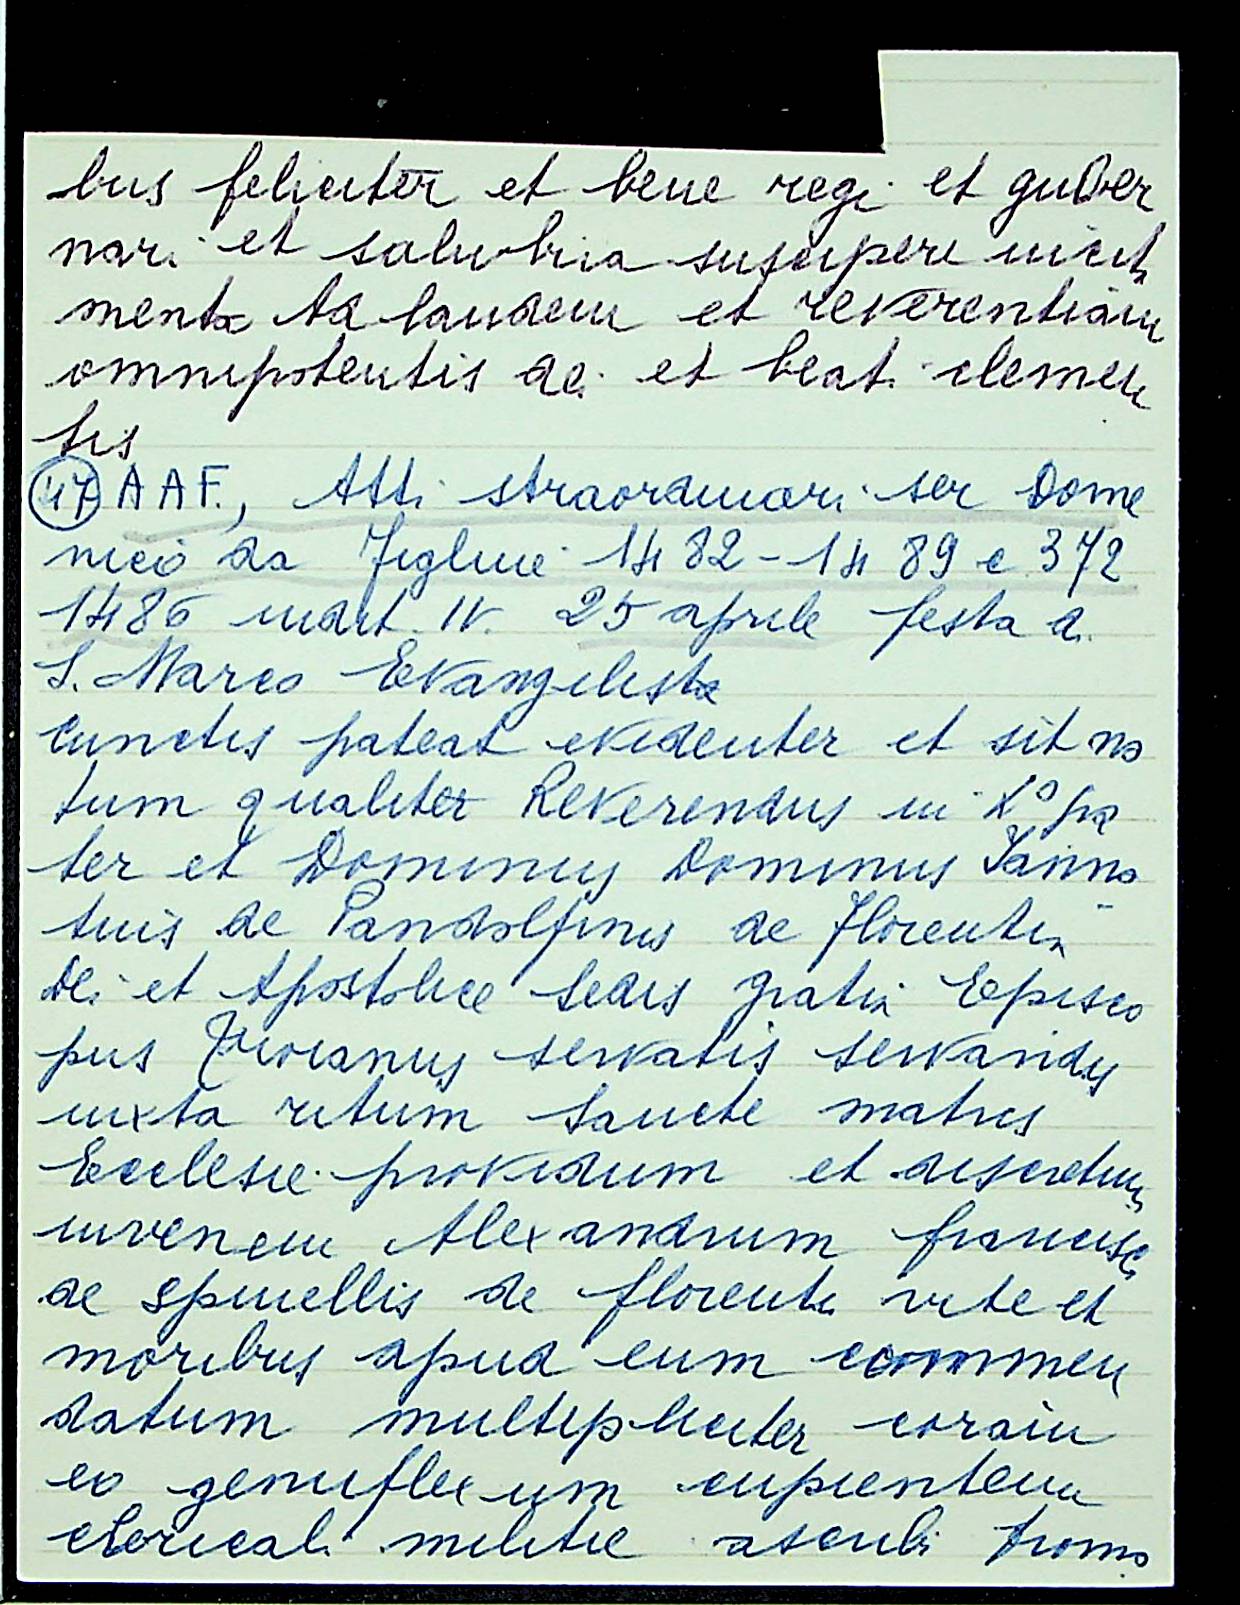 bus feliciter et bene regi et guber
nari et salubria suscipere incita
menta Ad laudem et reverentiam
omnipotentis dei et beati clemen
tis
47 A A F., Atti straordinari ser Dome
nico da Figline 1482-1489 c 372
1486 indict. IV. 25 aprile festa di
S. Marco Evangelista
Cunctis pateat evidenter et sit no
tum qualiter Reverendus in Xº pa
ter et Dominus Dominus Ianno
tius de Pandolfinis de Florentia
Dei et Apostolice Sedis gratia Episco
pus Troianus servatis servandis
iuxta ritum Sancte matris
Ecclesie providum et discretum
iuvenem Alexandrum francisci
de spinellis de florentia vite et
moribus apud eum commen
datum multipliciter coram
eo genuflexum cupientem
clericali militie ascribi promo